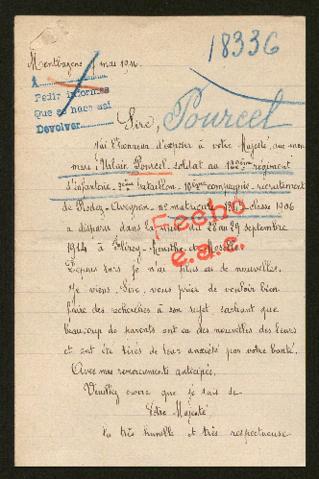 18336
Montbazens mai 1914
A
Pedir informes
Que se hace así
Devolver
Sire, Pourcel
J'ai l'honneur d'exposer à votre Majesté, que mon
mari Urbain Pourcel, soldat au 122ème régiment
d'infanterie, 3ème bataillon, 10ème compagnie, recrutement
de Rodez Aveyron, nº matricule classe 1906
a disparu dans la nuit du 28 au 29 septembre
1914 à Flirey Meurthe et Moselle.
Fecho
e.a.c.
Depuis lors je n'ai plus eu de nouvelles.
Je viens, Sire, vous prier de vouloir bien
faire des recherches à son sujet sachant que
beaucoup de parents ont eu des nouvelles des leurs
et ont été tirés de leur anxiété par votre bonté.
Avec mes remerciments anticipés.
Veuillez croire que je suis de
Votre Majesté
La très humble et très respectueuse